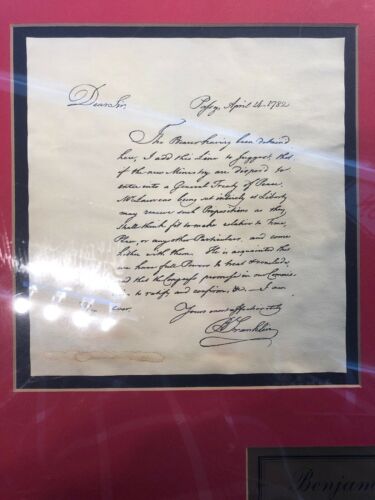 Dear Sir, Passy, April 21. 1782
The Bearer having been detained
here, I add this Line to suggest, that
if the new Ministry are disposed to
enter into a General Treaty of Peace,
Mr Laurens being set intirely at Liberty
may receive such Propositions as they
shall think fit to make relative to Time,
Place, or any other Particulars, and come
hither with them. He is acquainted that
we have full Powers to treat & conclude,
and that the Congress promise in our Commis-
to ratify and confirm, &c. — I am
ever,
Yours most affectionately
B Franklin
Benjam